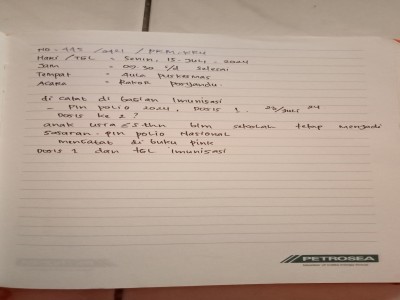 Hari / TGL : Senin, 15 - Juli - 2024
Jam : 09.30 s/d selesai
Tempat : Aula Puskesmas
Acara : Rakor Posyandu
di catat di bagian Imunisasi
- Pin polio 2024, Dosis 1. 23/Juli 24
Dosis ke 2 ?
anak usia ≤ 5 thn blm sekolah tetap menjadi
sasaran pin polio Nasional
mencatat di buku pink
Dosis 1 dan TGL Imunisasi
PETROSEA